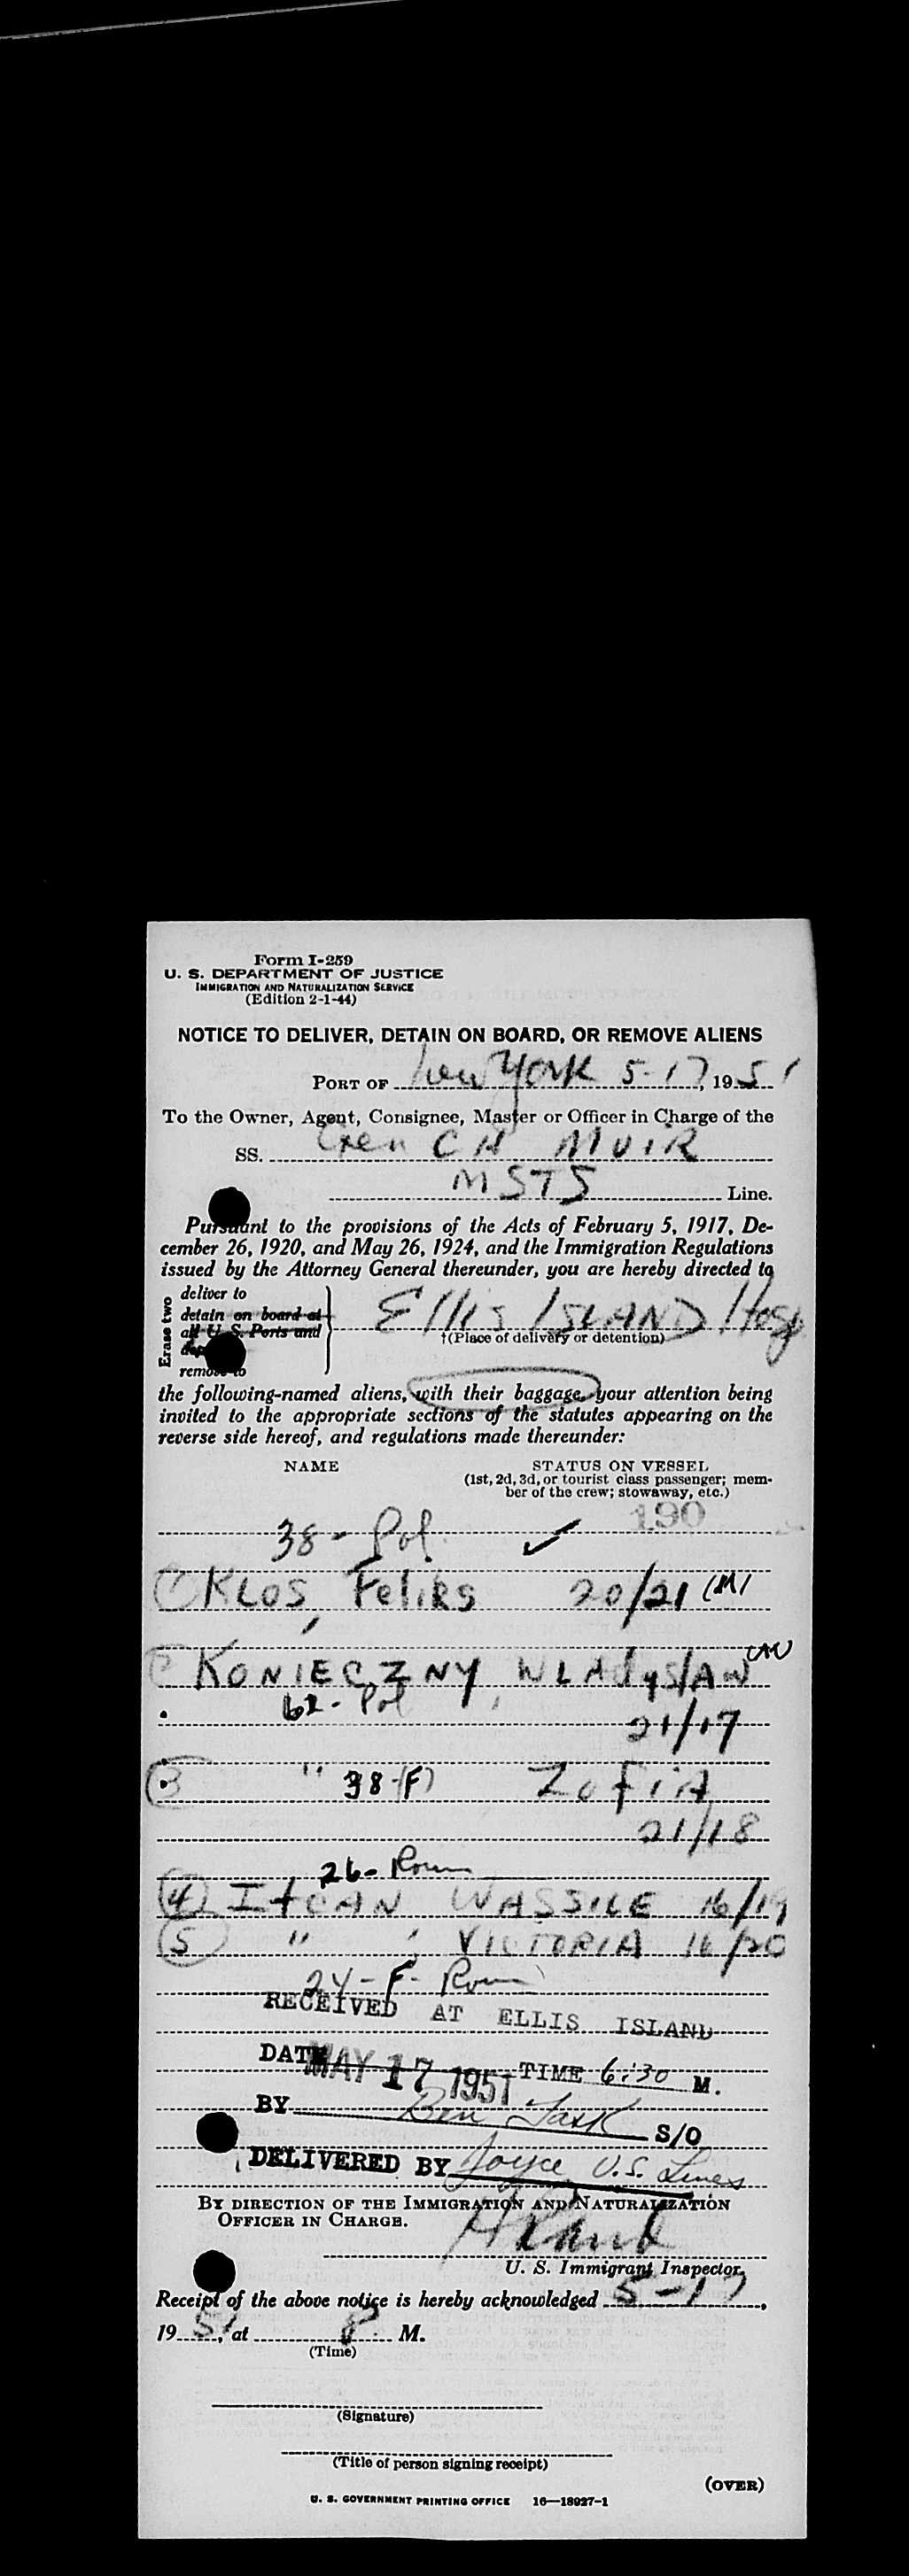 Form I-259
U. S. DEPARTMENT OF JUSTICE
IMMIGRATION AND NATURALIZATION SERVICE
(Edition 2-1-44)
NOTICE TO DELIVER, DETAIN ON BOARD, OR REMOVE ALIENS
PORT OF New York 5-17, 1951
To the Owner, Agent, Consignee, Master or Officer in Charge of the
SS. Gen C H MUIR
MSTS Line.
Pursuant to the provisions of the Acts of February 5, 1917, De-
cember 26, 1920, and May 26, 1924, and the Immigration Regulations
issued by the Attorney General thereunder, you are hereby directed to
Erase two
deliver to
detain on board at
all U. S. Ports and
remove to
Ellis ISLAND Hosp
†(Place of delivery or detention)
the following-named aliens, with their baggage, your attention being
invited to the appropriate sections of the statutes appearing on the
reverse side hereof, and regulations made thereunder:
NAME STATUS ON VESSEL
(1st, 2d, 3d, or tourist class passenger; mem-
ber of the crew; stowaway, etc.)
190
38 - Pol ✓
KLOS, Feliks 20/21 (M)
KONIECZNY, WLADYSLAW
62 - Pol
21/17
3 " 38-(F) ZOFIA
21/18
26 - Roum
4 ITCAN WASSILE 16/19
5 " , VICTORIA 16/20
24 - F - Roum
RECEIVED AT ELLIS ISLAND
DATE MAY 17 1951 TIME 6:30 M.
BY Ben Task S/O
DELIVERED BY Joyce U.S. Lines
BY DIRECTION OF THE IMMIGRATION AND NATURALIZATION
OFFICER IN CHARGE.
U. S. Immigrant Inspector.
Receipt of the above notice is hereby acknowledged 5-17,
1951, at 8 M.
(Time)
(Signature)
(Title of person signing receipt)
(OVER)
U. S. GOVERNMENT PRINTING OFFICE 16—18927-1